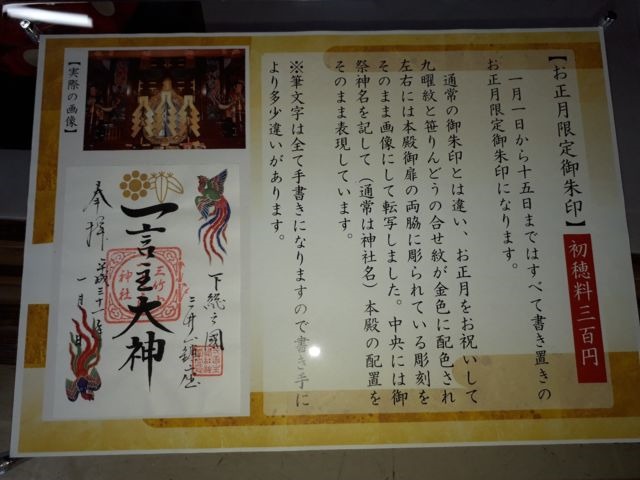 【お正月限定御朱印】
初穂料三百円
一月一日から十五日まではすべて書き置きの
お正月限定御朱印になります。
通常の御朱印とは違い、お正月をお祝いして
九曜紋と笹りんどうの合せ紋が金色に配色され
左右には本殿御扉の両脇に彫られている彫刻を
そのまま画像にして転写しました。中央には御
祭神名を記して(通常は神社名)本殿の配置を
そのまま表現しています。
※筆文字は全て手書きになりますので書き手に
より多少違いがあります。
【実際の画像】
下総之國
一言主大神
奉拝
平成三十一年
一月 日